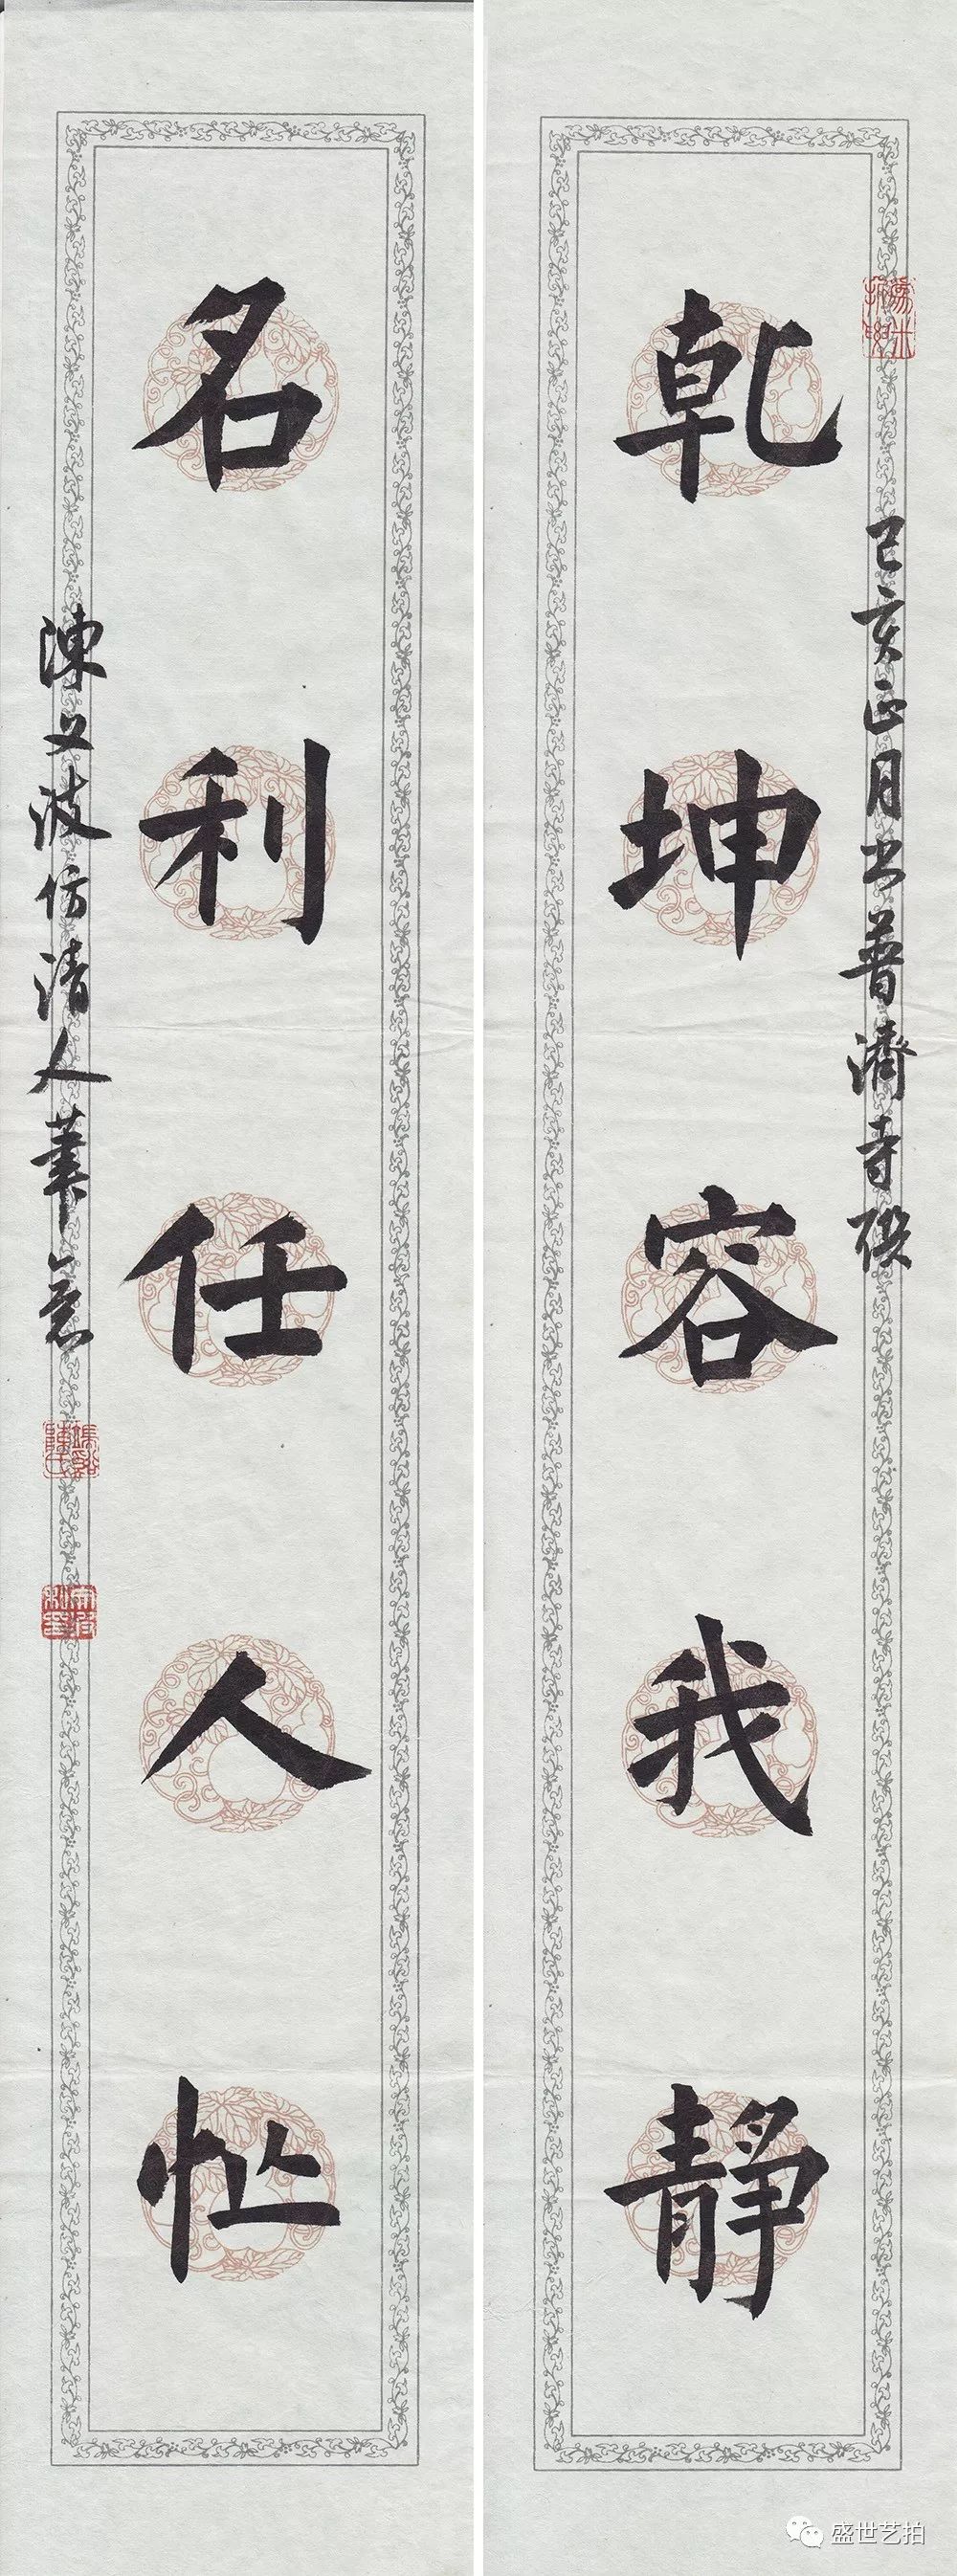 乾坤容我静
己亥正月书普濟寺碶
名利任人忙
陳义波仿清人筆意
盛世艺拍